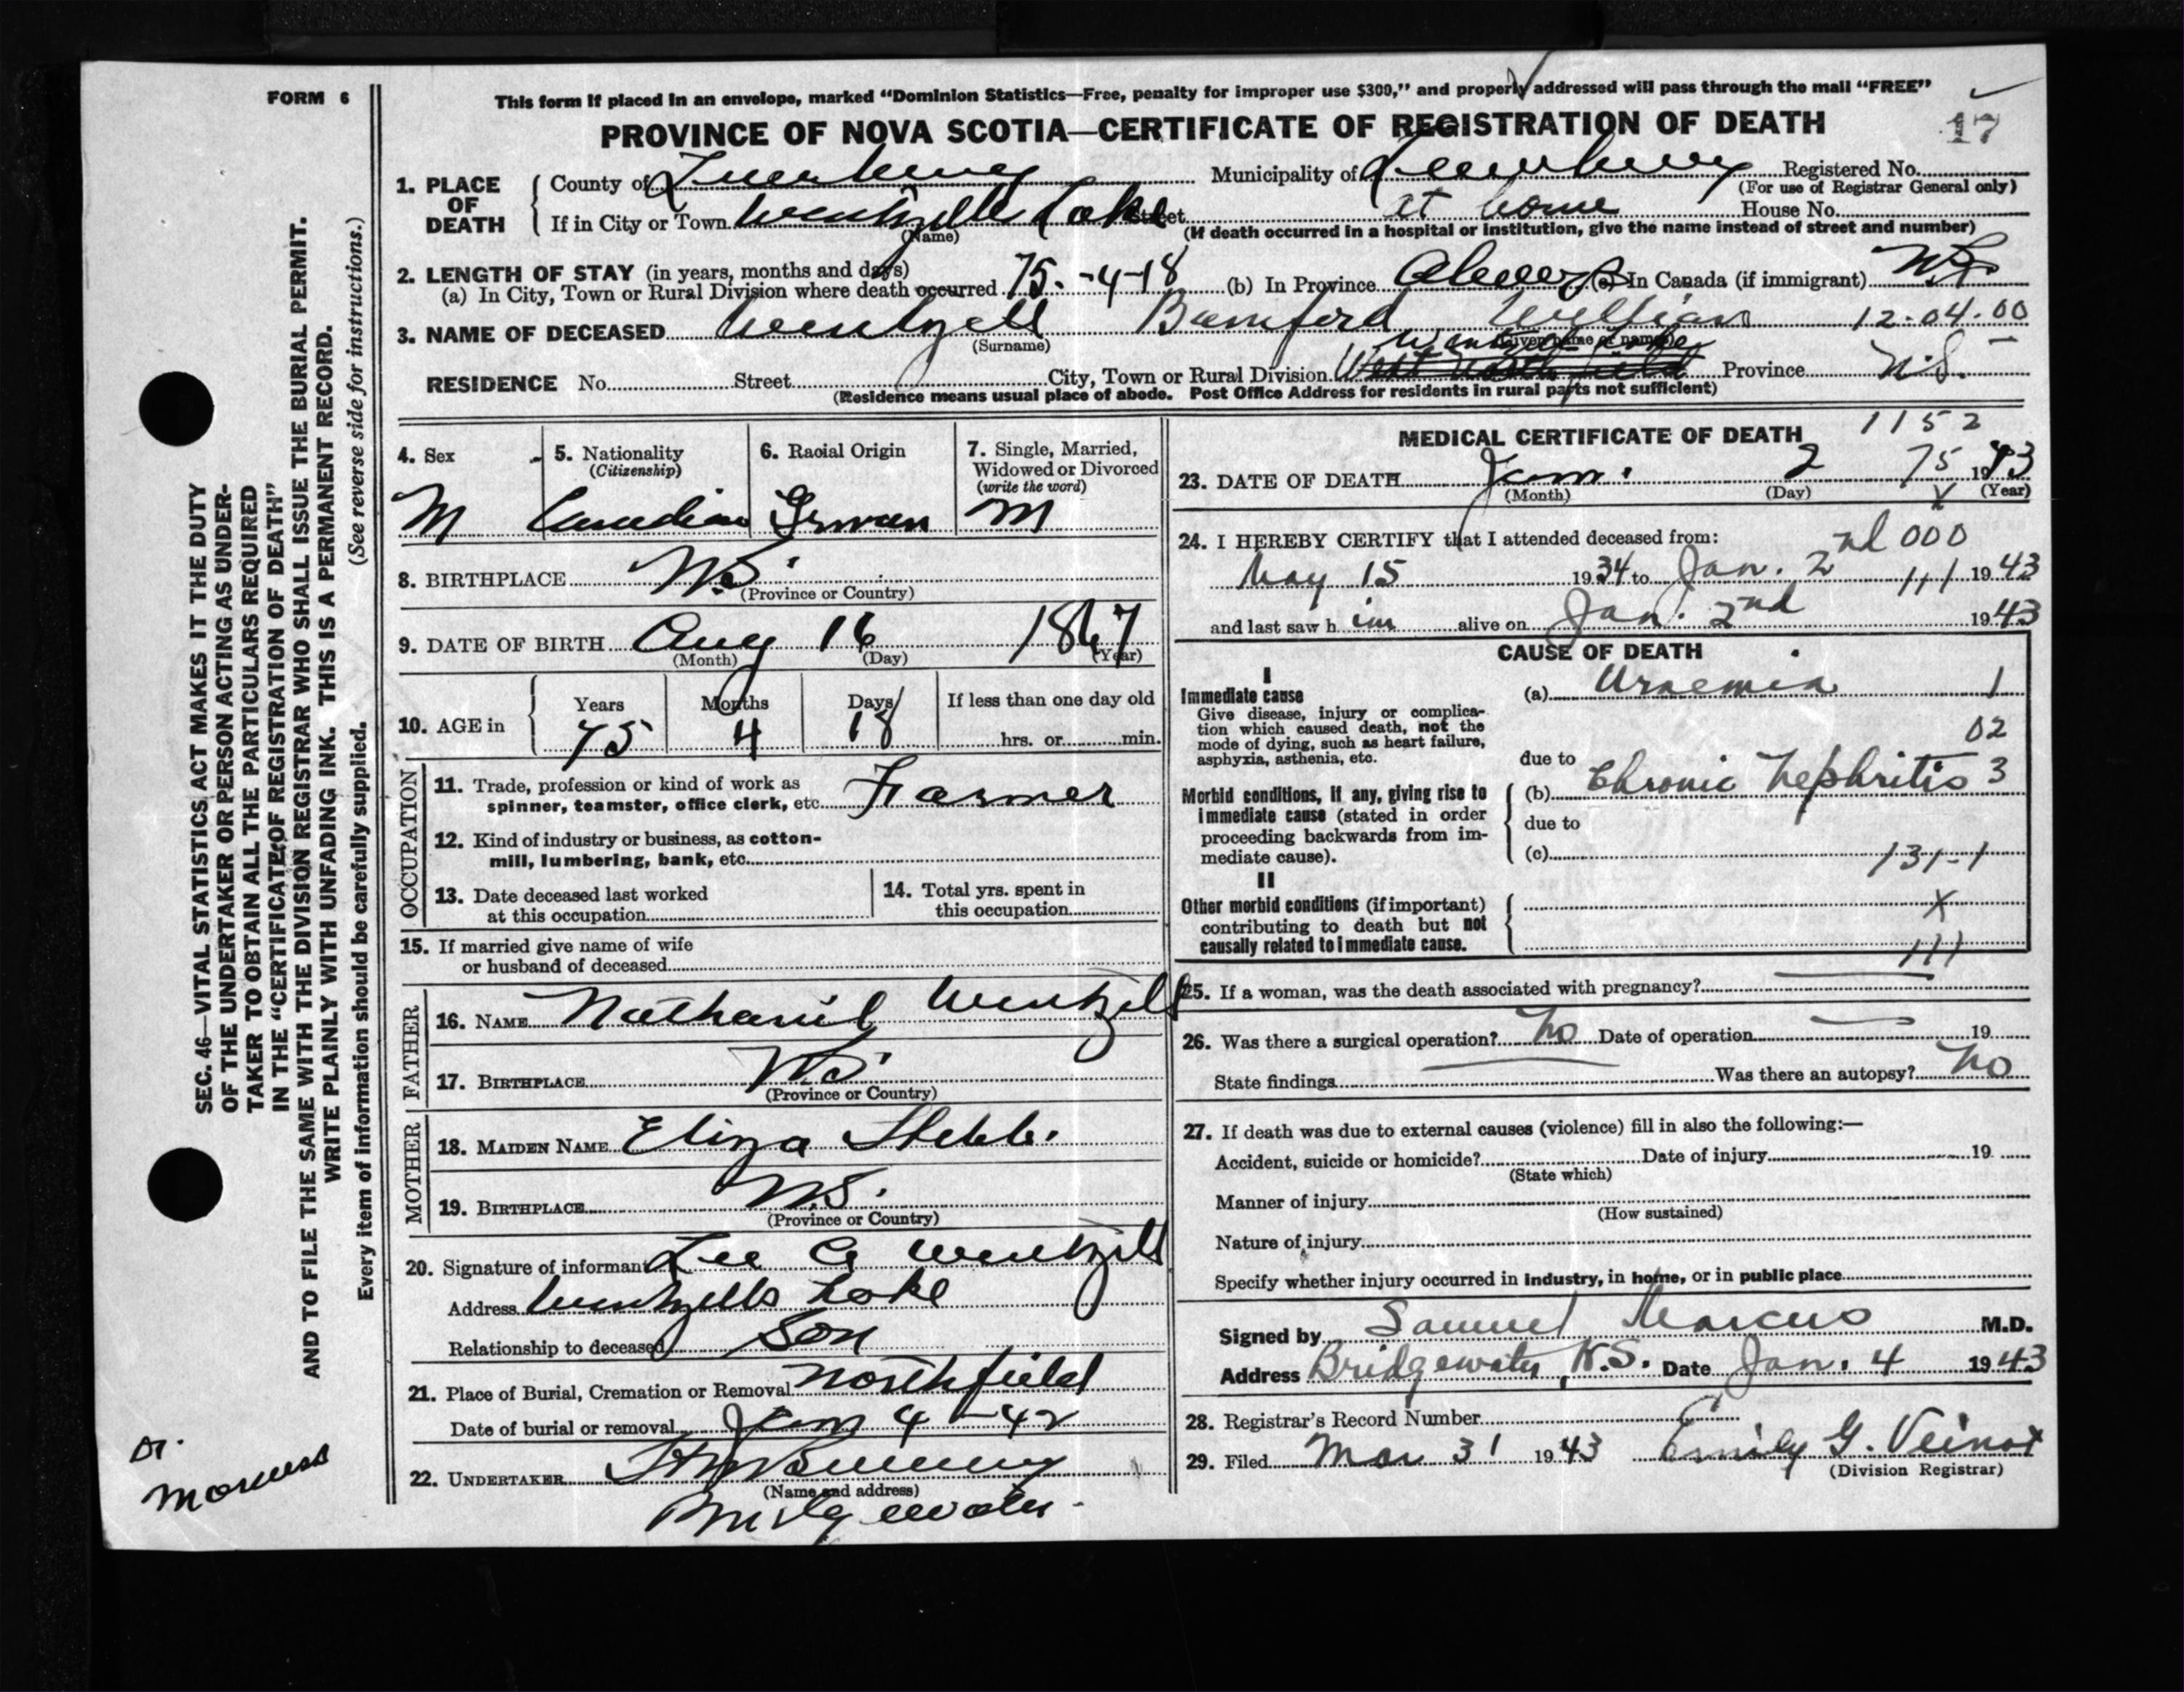 FORM 6
This form if placed in an envelope, marked "Dominion Statistics—Free, penalty for improper use $300," and properly addressed will pass through the mail "FREE"
PROVINCE OF NOVA SCOTIA—CERTIFICATE OF REGISTRATION OF DEATH
17
1. PLACE OF DEATH County of Lunenburg Municipality of Lunenburg Registered No.
(For use of Registrar General only)
If in City or Town Wentzells Lake Street at home House No.
(Name) (If death occurred in a hospital or institution, give the name instead of street and number)
2. LENGTH OF STAY (in years, months and days)
(a) In City, Town or Rural Division where death occurred 75-4-18 (b) In Province Always (c) In Canada (if immigrant)
3. NAME OF DECEASED Wentzell Bamford William 12-04-00
(Surname) (Given name or names)
Wentzells Lake
RESIDENCE No. Street City, Town or Rural Division West Northfield Province N.S.
(Residence means usual place of abode. Post Office Address for residents in rural parts not sufficient)
4. Sex
M
5. Nationality
(Citizenship)
Canadian
6. Racial Origin
German
7. Single, Married,
Widowed or Divorced
(write the word)
M
8. BIRTHPLACE N.S.
(Province or Country)
9. DATE OF BIRTH Aug 16 1867
(Month) (Day) (Year)
10. AGE in Years Months Days If less than one day old
75 4 18 hrs. or min.
OCCUPATION
11. Trade, profession or kind of work as
spinner, teamster, office clerk, etc. Farmer
12. Kind of industry or business, as cotton-
mill, lumbering, bank, etc.
13. Date deceased last worked
at this occupation
14. Total yrs. spent in
this occupation
15. If married give name of wife
or husband of deceased
FATHER
16. NAME Nathaniel Wentzell
17. BIRTHPLACE N.S.
(Province or Country)
MOTHER
18. MAIDEN NAME Eliza
19. BIRTHPLACE N.S.
(Province or Country)
20. Signature of informant Lee G Wentzell
Address Wentzells Lake
Relationship to deceased Son
21. Place of Burial, Cremation or Removal Northfield
Date of burial or removal Jan 4 - 42
22. UNDERTAKER
(Name and address)
Bridgewater
MEDICAL CERTIFICATE OF DEATH
1152
23. DATE OF DEATH Jan. 2 75 1943
(Month) (Day) (Year)
x
24. I HEREBY CERTIFY that I attended deceased from:
000
May 15 1934 to Jan. 2nd 111 1943
and last saw h im alive on Jan. 2nd 1943
CAUSE OF DEATH
I
Immediate cause
Give disease, injury or complica-
tion which caused death, not the
mode of dying, such as heart failure,
asphyxia, asthenia, etc.
(a) Uraemia 1
02
due to
Morbid conditions, if any, giving rise to
immediate cause (stated in order
proceeding backwards from im-
mediate cause).
(b) Chronic Nephritis 3
due to
(c) 131-1
II
Other morbid conditions (if important)
contributing to death but not
causally related to immediate cause.
X
111
25. If a woman, was the death associated with pregnancy?
26. Was there a surgical operation? No Date of operation 19
State findings Was there an autopsy? No
27. If death was due to external causes (violence) fill in also the following:—
Accident, suicide or homicide? Date of injury 19
(State which)
Manner of injury
(How sustained)
Nature of injury
Specify whether injury occurred in industry, in home, or in public place
Signed by Samuel Marcus M.D.
Address Bridgewater, N.S. Date Jan. 4 1943
28. Registrar's Record Number
29. Filed Mar 31 1943 Emily G. Veinot
(Division Registrar)
SEC. 46—VITAL STATISTICS ACT MAKES IT THE DUTY
OF THE UNDERTAKER OR PERSON ACTING AS UNDER-
TAKER TO OBTAIN ALL THE PARTICULARS REQUIRED
IN THE "CERTIFICATE OF REGISTRATION OF DEATH"
AND TO FILE THE SAME WITH THE DIVISION REGISTRAR WHO SHALL ISSUE THE BURIAL PERMIT.
WRITE PLAINLY WITH UNFADING INK. THIS IS A PERMANENT RECORD.
Every item of information should be carefully supplied. (See reverse side for instructions.)
Dr.
Marcus